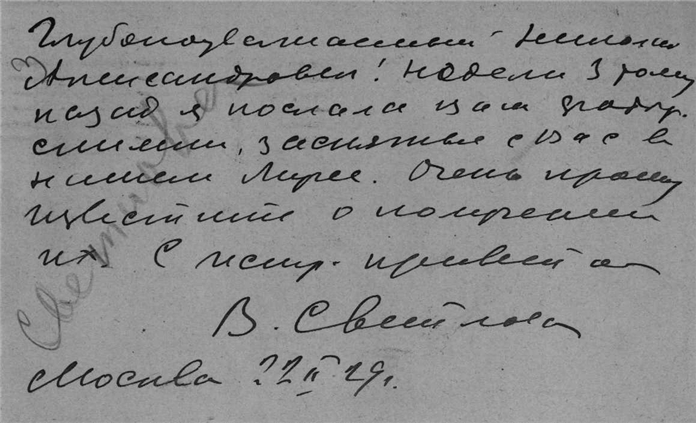 Глубокоуважаемый Николай
Александрович! Недели 3 тому
назад я послала вам фотогр.
снимки, заснятые с Вас в
нашем Музее. Очень прошу
известить о получении
их. С искр. приветом
В. Светлова
Москва 22 II 29 г.